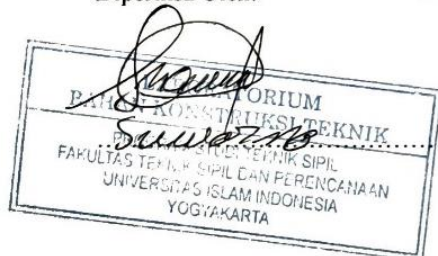 LABORATORIUM
BAHAN KONSTRUKSI TEKNIK
Suwarno
PROGRAM STUDI TEKNIK SIPIL
FAKULTAS TEKNIK SIPIL DAN PERENCANAAN
UNIVERSITAS ISLAM INDONESIA
YOGYAKARTA